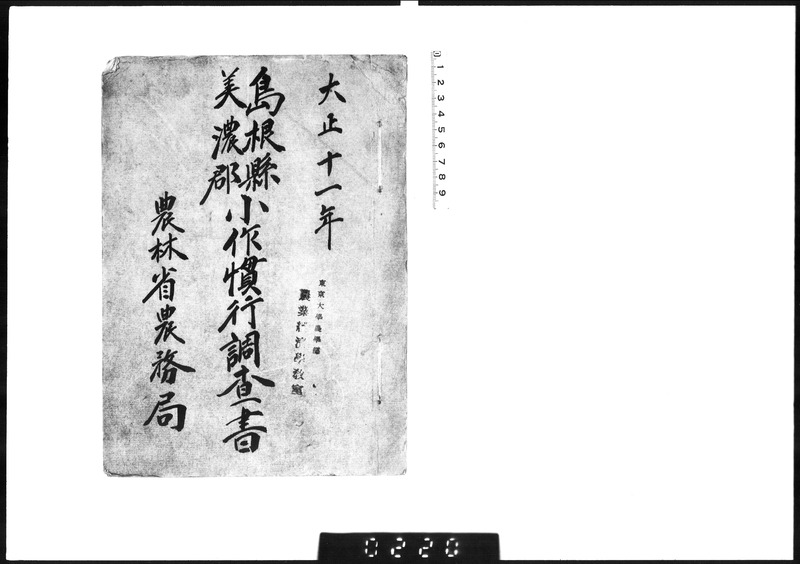 大正十一年
島根縣
美濃郡
小作慣行調査書
農林省農務局
東京大學農學部
農業經濟學教室
0 1 2 3 4 5 6 7 8 9
0220